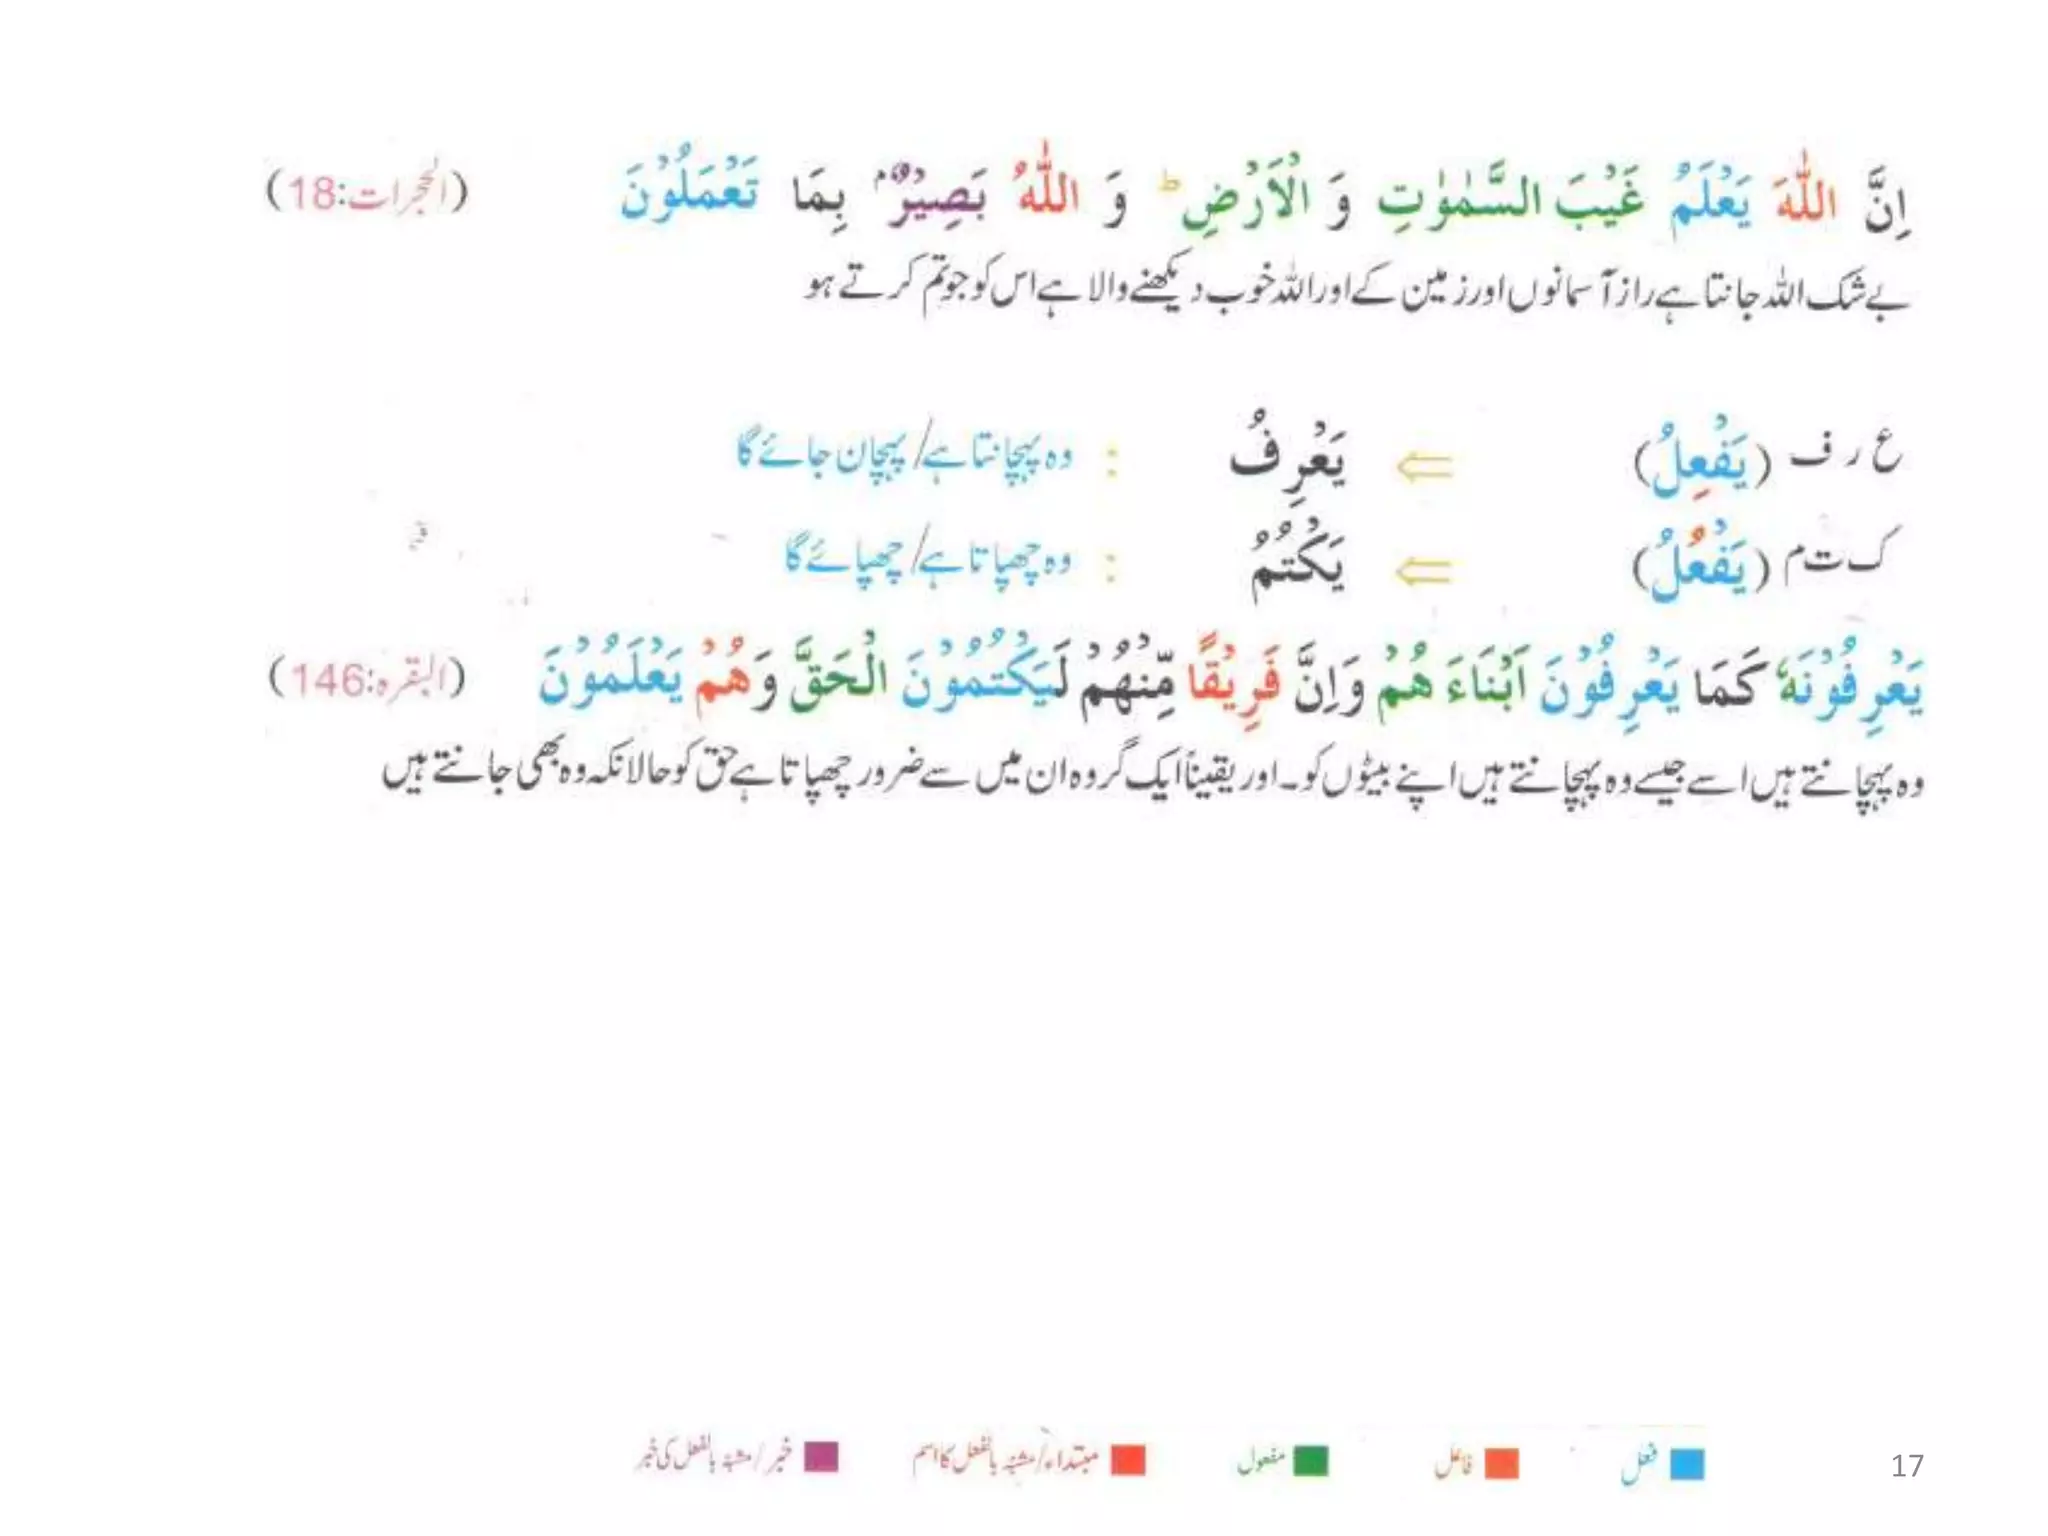 اِنَّ اللّٰهَ يَعْلَمُ غَيْبَ السَّمٰوٰتِ وَ الْاَرْضِ ؕ وَ اللّٰهُ بَصِيْرٌۢ بِمَا تَعْمَلُوْنَ (الحجرات:18)
بے شک اللہ جانتا ہے راز آسمانوں اور زمین کے اور اللہ خوب دیکھنے والا ہے اس کو جو تم کرتے ہو
ع ر ف (يَفْعِلُ) ⇐ يَعْرِفُ : وہ پہچانتا ہے/پہچان جائے گا
ک ت م (يَفْعُلُ) ⇐ يَكْتُمُ : وہ چھپاتا ہے/چھپائے گا
يَعْرِفُوْنَهٗ كَمَا يَعْرِفُوْنَ اَبْنَاءَ هُمْ وَاِنَّ فَرِيْقًا مِّنْهُمْ لَيَكْتُمُوْنَ الْحَقَّ وَهُمْ يَعْلَمُوْنَ (البقرہ:146)
وہ پہچانتے ہیں اسے جیسے وہ پہچانتے ہیں اپنے بیٹوں کو۔ اور یقیناً ایک گروہ ان میں سے ضرور چھپاتا ہے حق کو حالانکہ وہ بھی جانتے ہیں
فعل فاعل مفعول مبتداء/مشبہ بالفعل کا اسم خبر/مشبہ بالفعل کی خبر
17